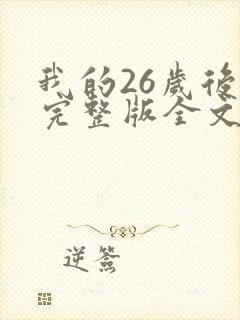 我的26歲後
完整版全文
逆簽